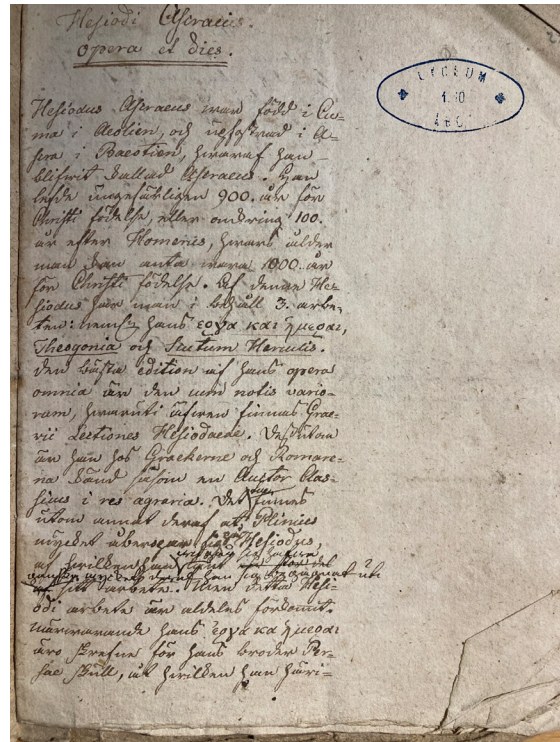 Hesiodi Ascraei.
opera et dies.
LYCEUM
ABO
Hesiodus Ascraeus war född i Cu-
ma i Aeolien, och upfostrad i A-
scra i Baeotien, hwaraf han
blifwit kallad Ascraeus. Han
lefde ungefärligen 900. år för
Christi födelse, eller omkring 100.
år efter Homerus, hwars ålder
man kan anta wara 1000 år
för Christi födelse. Af denne He-
siodus har man i behåll 3. arbe-
ten: nemligen hans εργα και ημεραι,
Theogonia och Scutum Herculis.
den bästa edition af hans opera
omnia är den cum notis vario-
rum, hwaruti äfwen finnas Grae-
vii Lectiones Hesiodaeae. Dessutom
är han hos Graekerne och Romare-
na känd såsom en Auctor Clas-
sicus i res agraria. Det finnes
utom annat deraf at Plinius
mycket Hesiodus,
af hwilken
arbete. Men detta Hesi-
odi arbete är aldeles förkommit.
närwarande hans εργα κα ημεραι
äro skrefne för hans broder Per-
sae skull, åt hwilken han